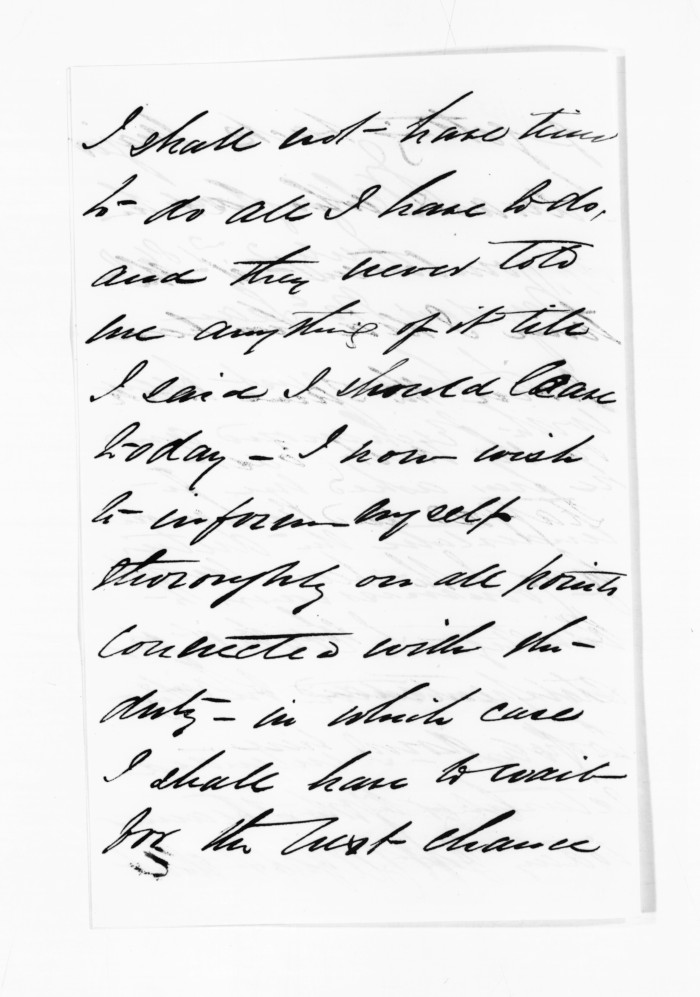 I shall not have time
to do all I have to do,
and they never told
me anything of it till
I said I should leave
today – I now wish
to inform myself
thoroughly on all points
connected with the
duty – in which case
I shall have to wait
for the next chance